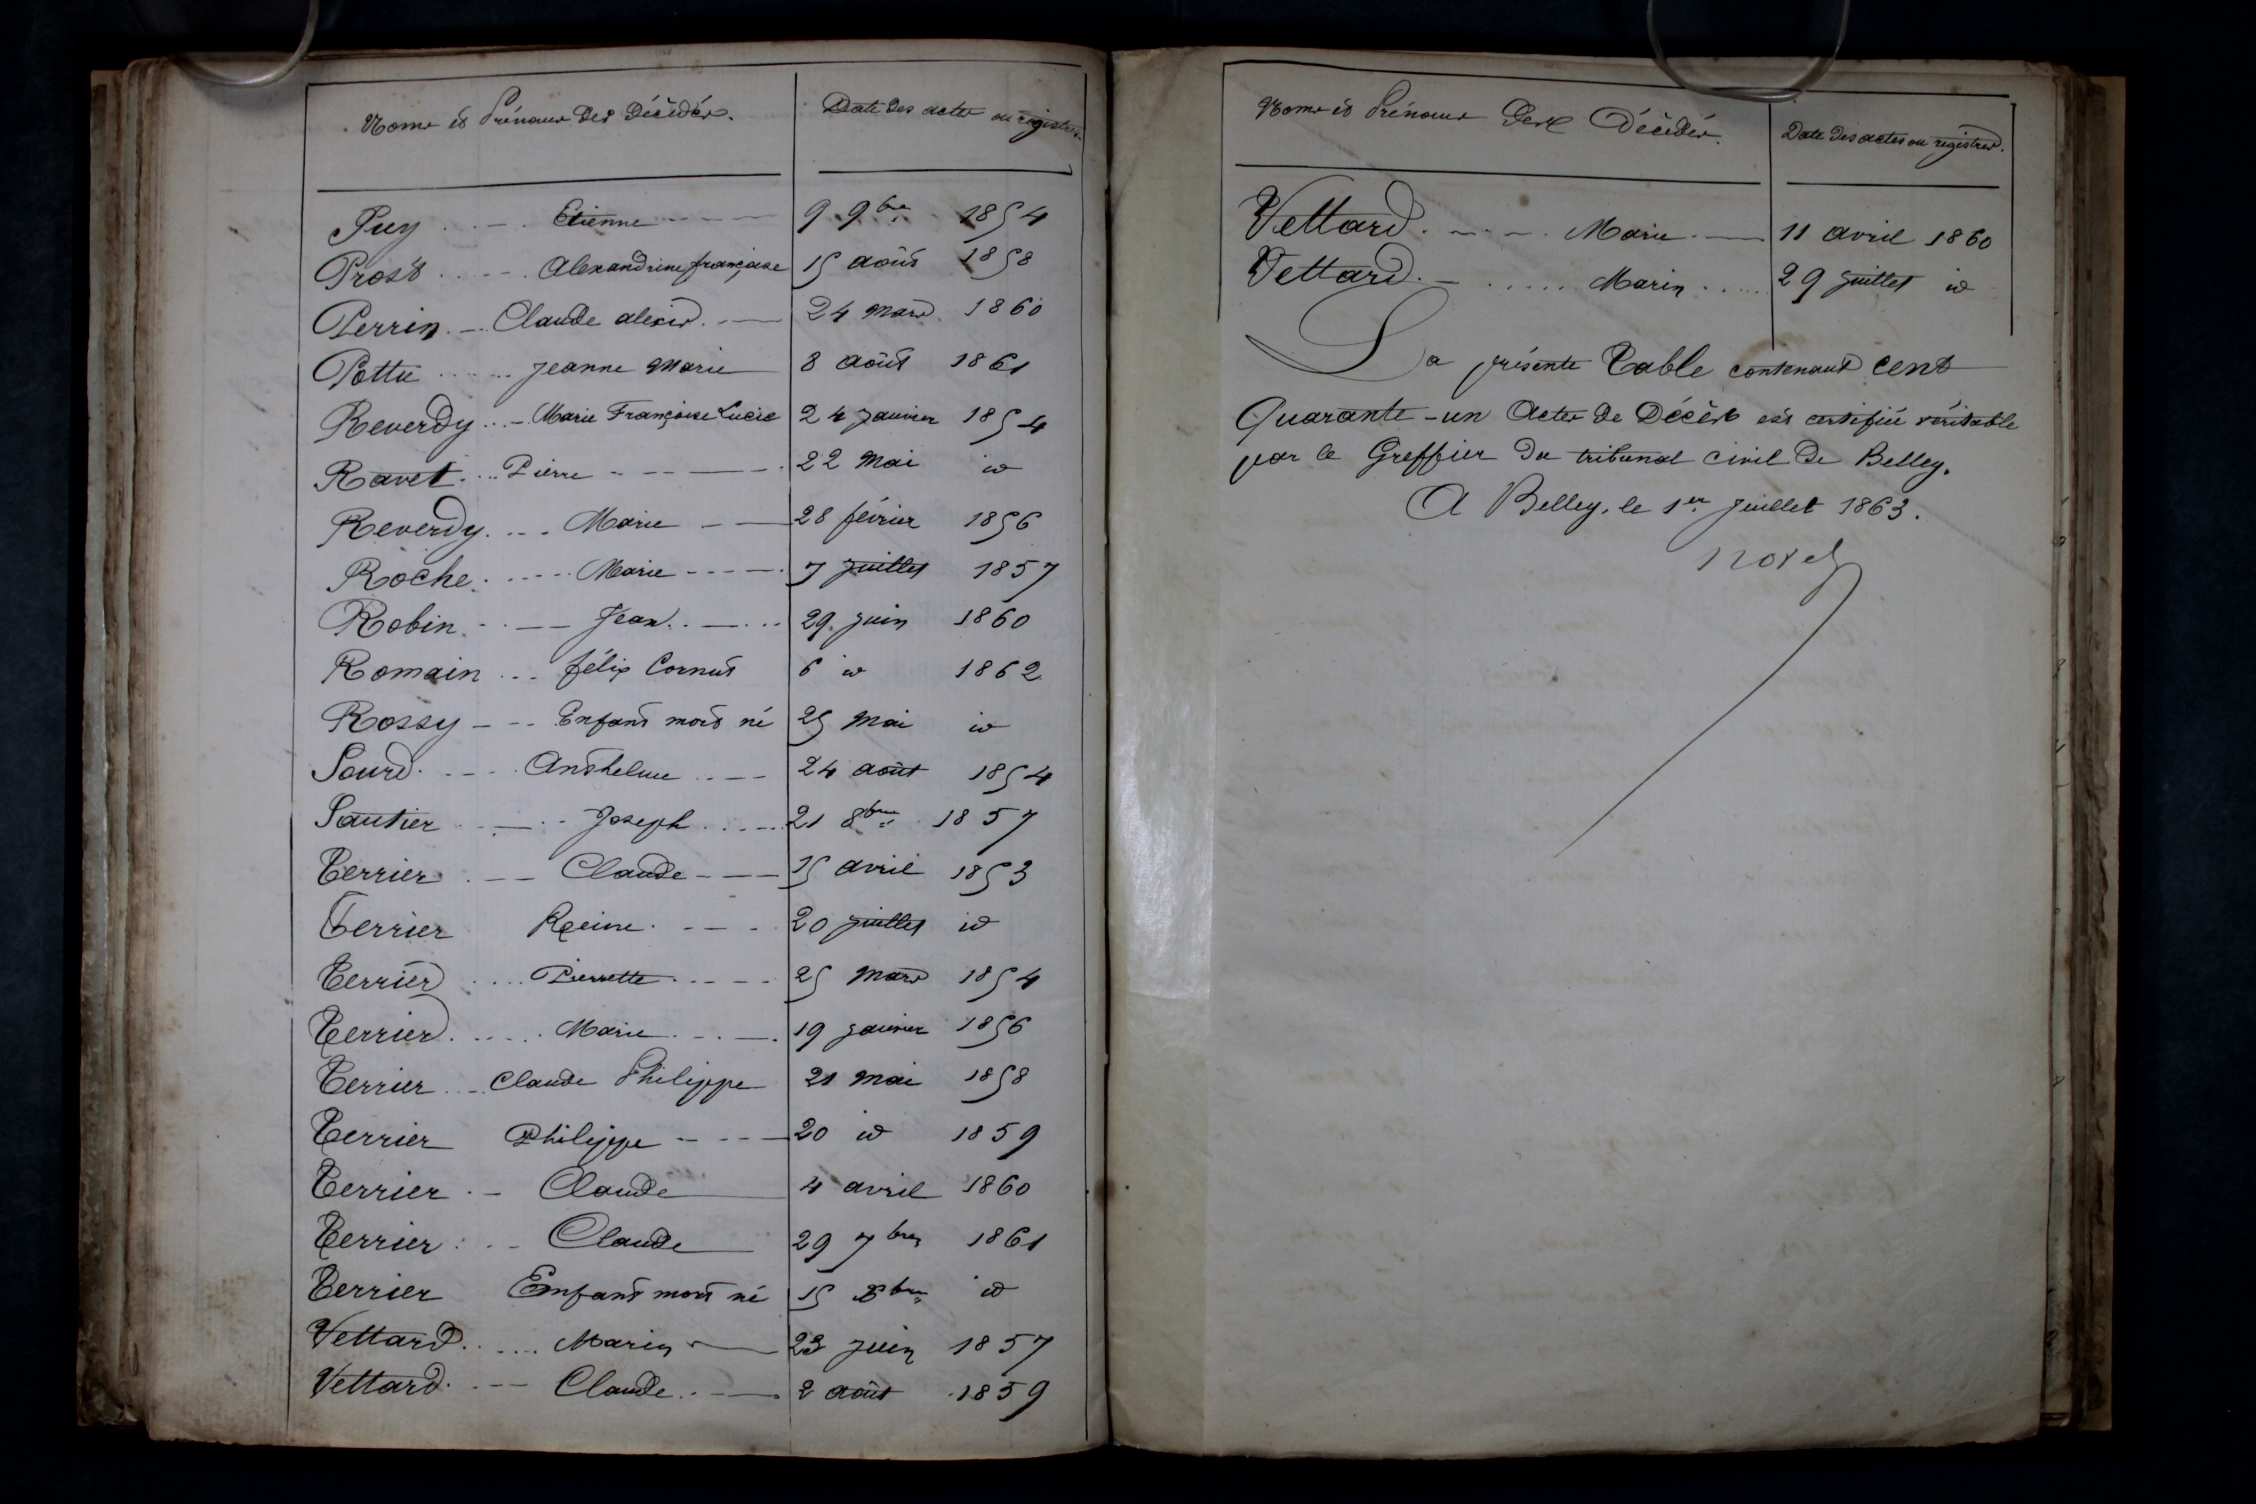 Noms et Prénoms des Décédés. Date des actes ou registres.
Puy Etienne 9 9bre 1854
Prost Alexandrine françoise 15 août 1858
Perrin Claude alexis 24 mars 1860
Pottu Jeanne Marie 8 août 1861
Reverdy Marie Françoise Lucie 24 Janvier 1854
Ravet Pierre 22 Mai id
Reverdy Marie 28 février 1856
Roche Marie 7 Juillet 1857
Robin Jean 29 Juin 1860
Romain félix Cornut 6 id 1862
Rossy Enfant mort né 25 Mai id
Sourd Anthelme 24 août 1854
Sautier Joseph 21 8bre 1857
Terrier Claude 15 avril 1853
Terrier Reine 20 Juillet id
Terrier Pierrette 25 Mars 1854
Terrier Marie 19 Janvier 1856
Terrier Claude Philippe 21 Mai 1858
Terrier Philippe 20 id 1859
Terrier Claude 4 avril 1860
Terrier Claude 29 7bre 1861
Terrier Enfant mort né 15 Xbre id
Vettard Marin 23 Juin 1857
Vettard Claude 2 août 1859
Noms et Prénoms des Décédés. Date des actes ou registres.
Vettard Marie 11 avril 1860
Vettard Marin 29 Juillet id
La présente Table contenant cent
Quarante-un Actes de Décès est certifiée véritable
par le Greffier du tribunal civil de Belley.
A Belley, le 1er Juillet 1863.